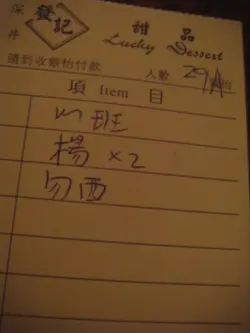 深井
發記 甜品
Lucky Dessert
請到收銀枱付款 人數 29A 位
項 Item 目
班
楊 x2
勿西